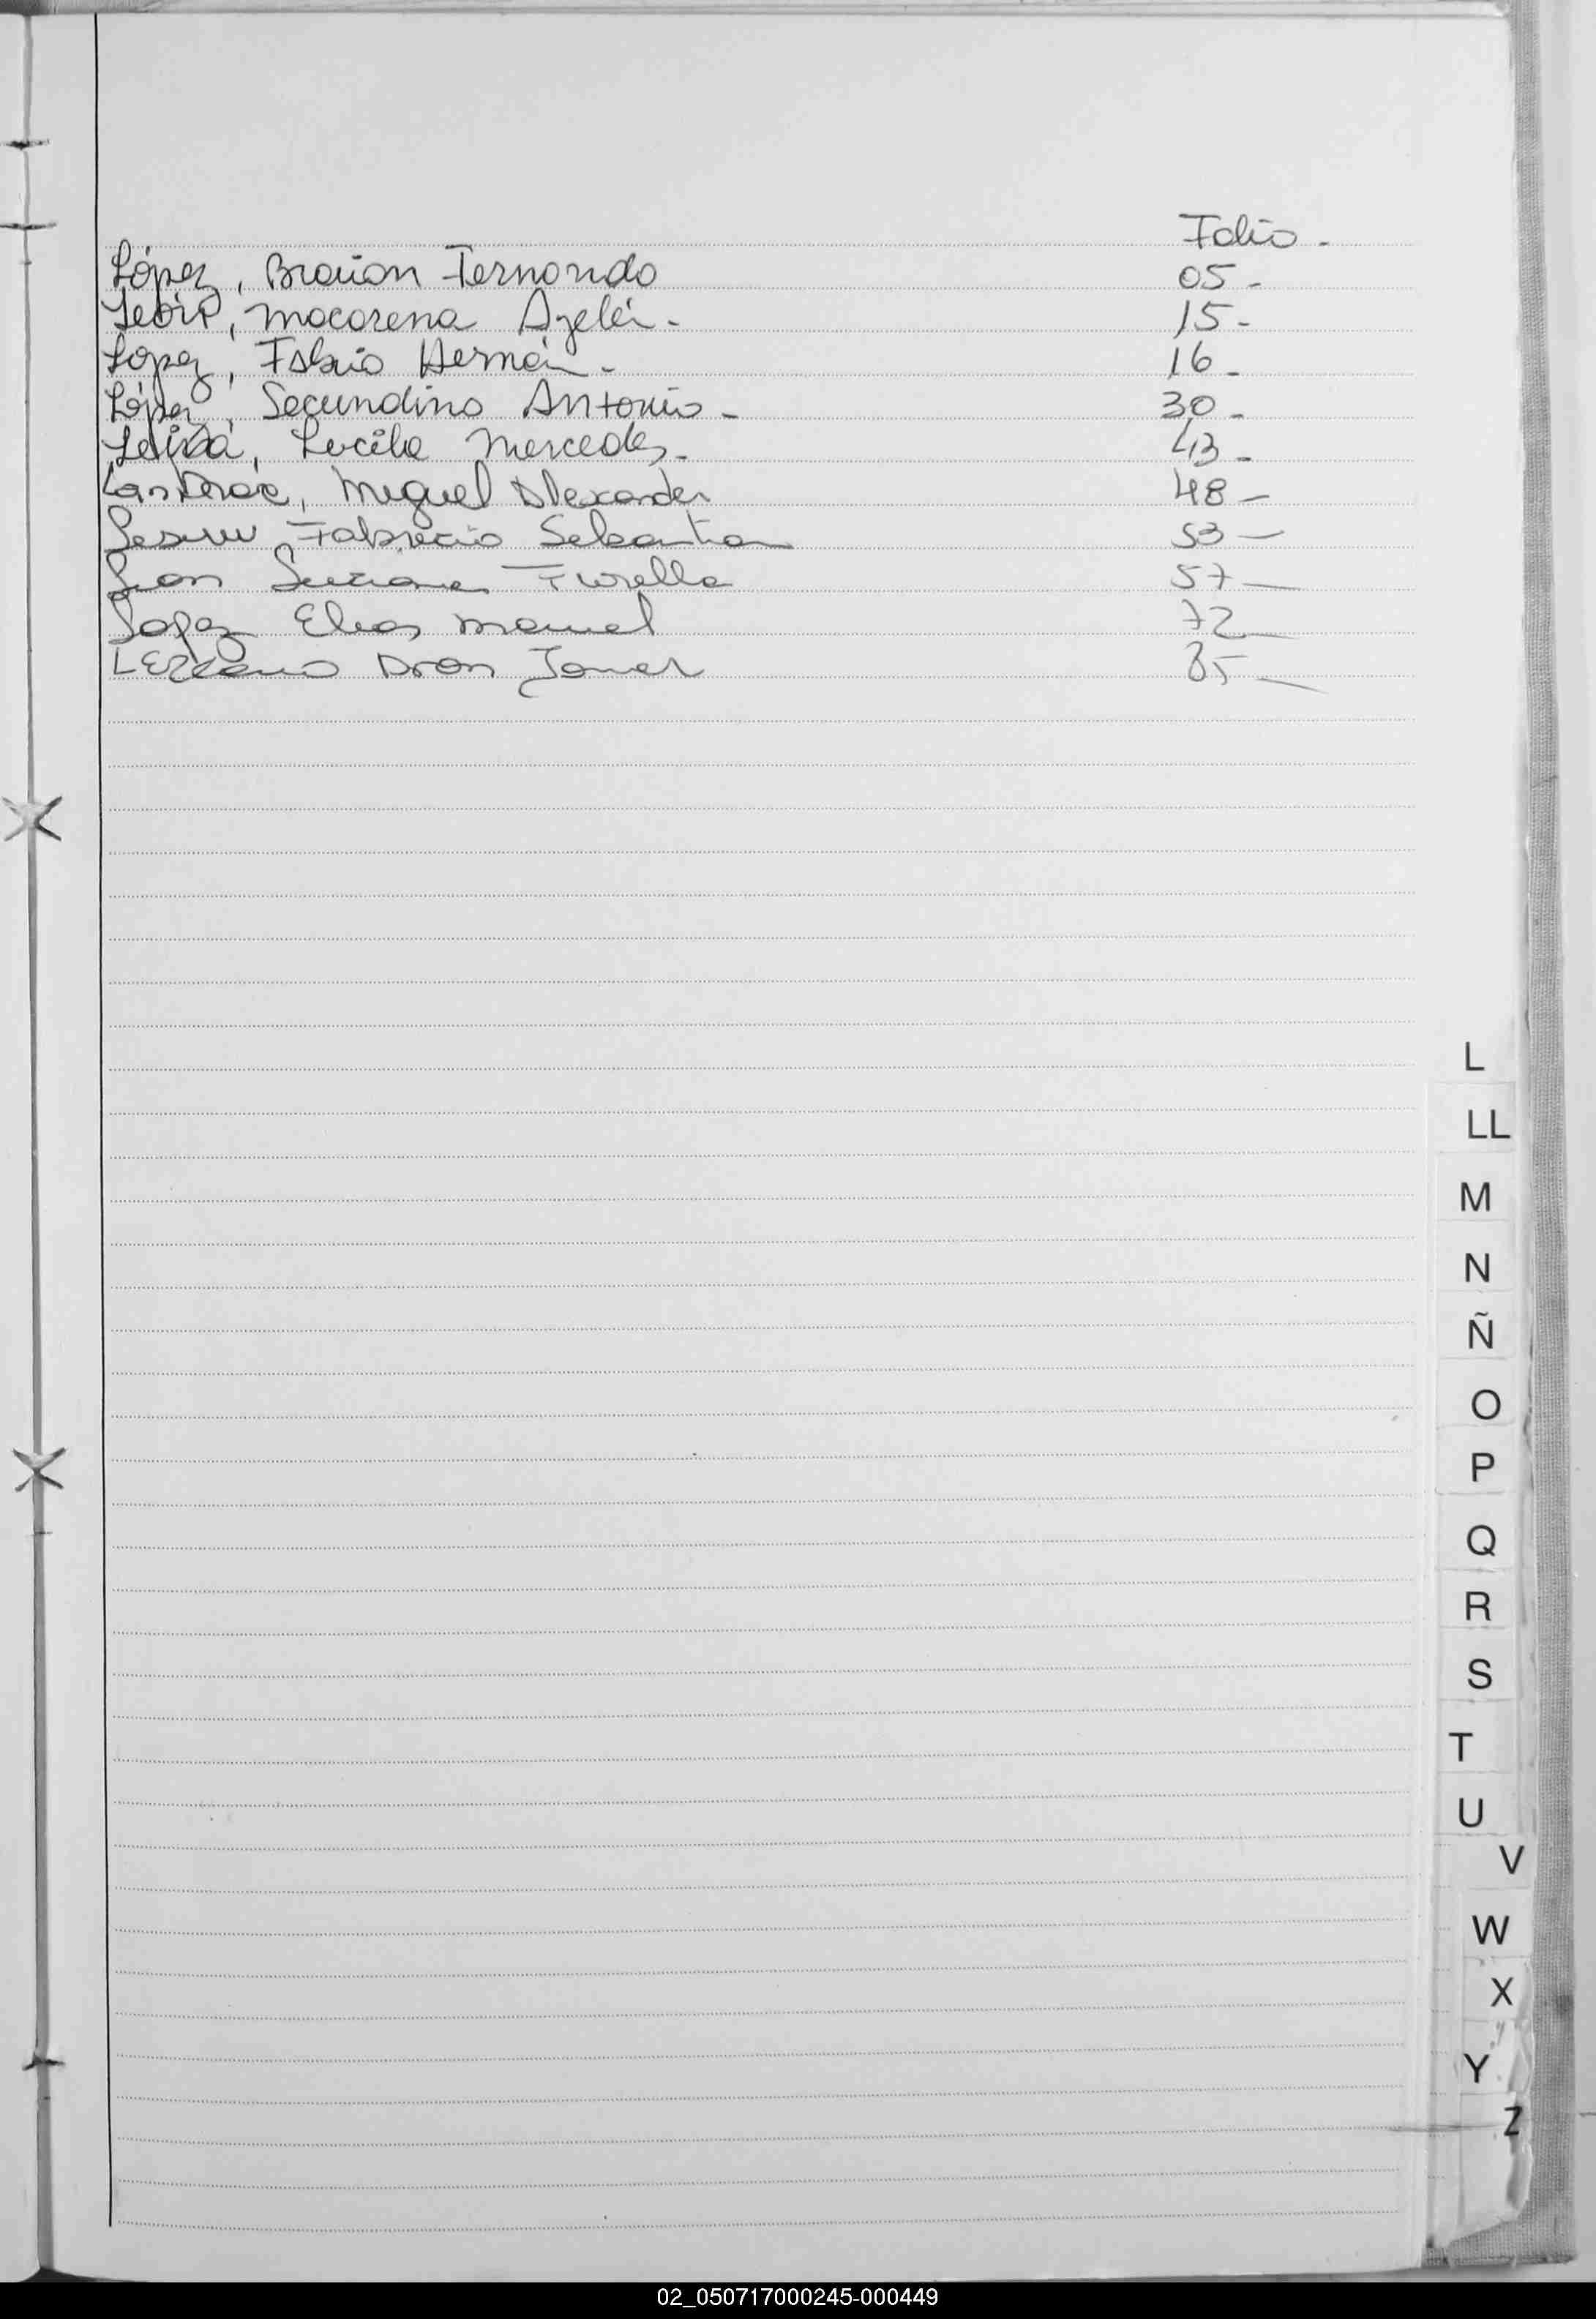 Folio -
López, Braian Fernando 05 -
Macarena Ayelén - 15 -
López, Fabio Hernán - 16 -
López, Secundino Antonio - 30 -
Leiva, Lucila Mercedes - 43 -
Miguel Alexander 48 -
Fabricio Sebastian 53 -
Fiorella 57 -
Lopez Elias Manuel 72 -
Lezcano 85 -
L
LL
M
N
Ñ
O
P
Q
R
S
T
U
V
W
X
Y
Z
02_050717000245-000449